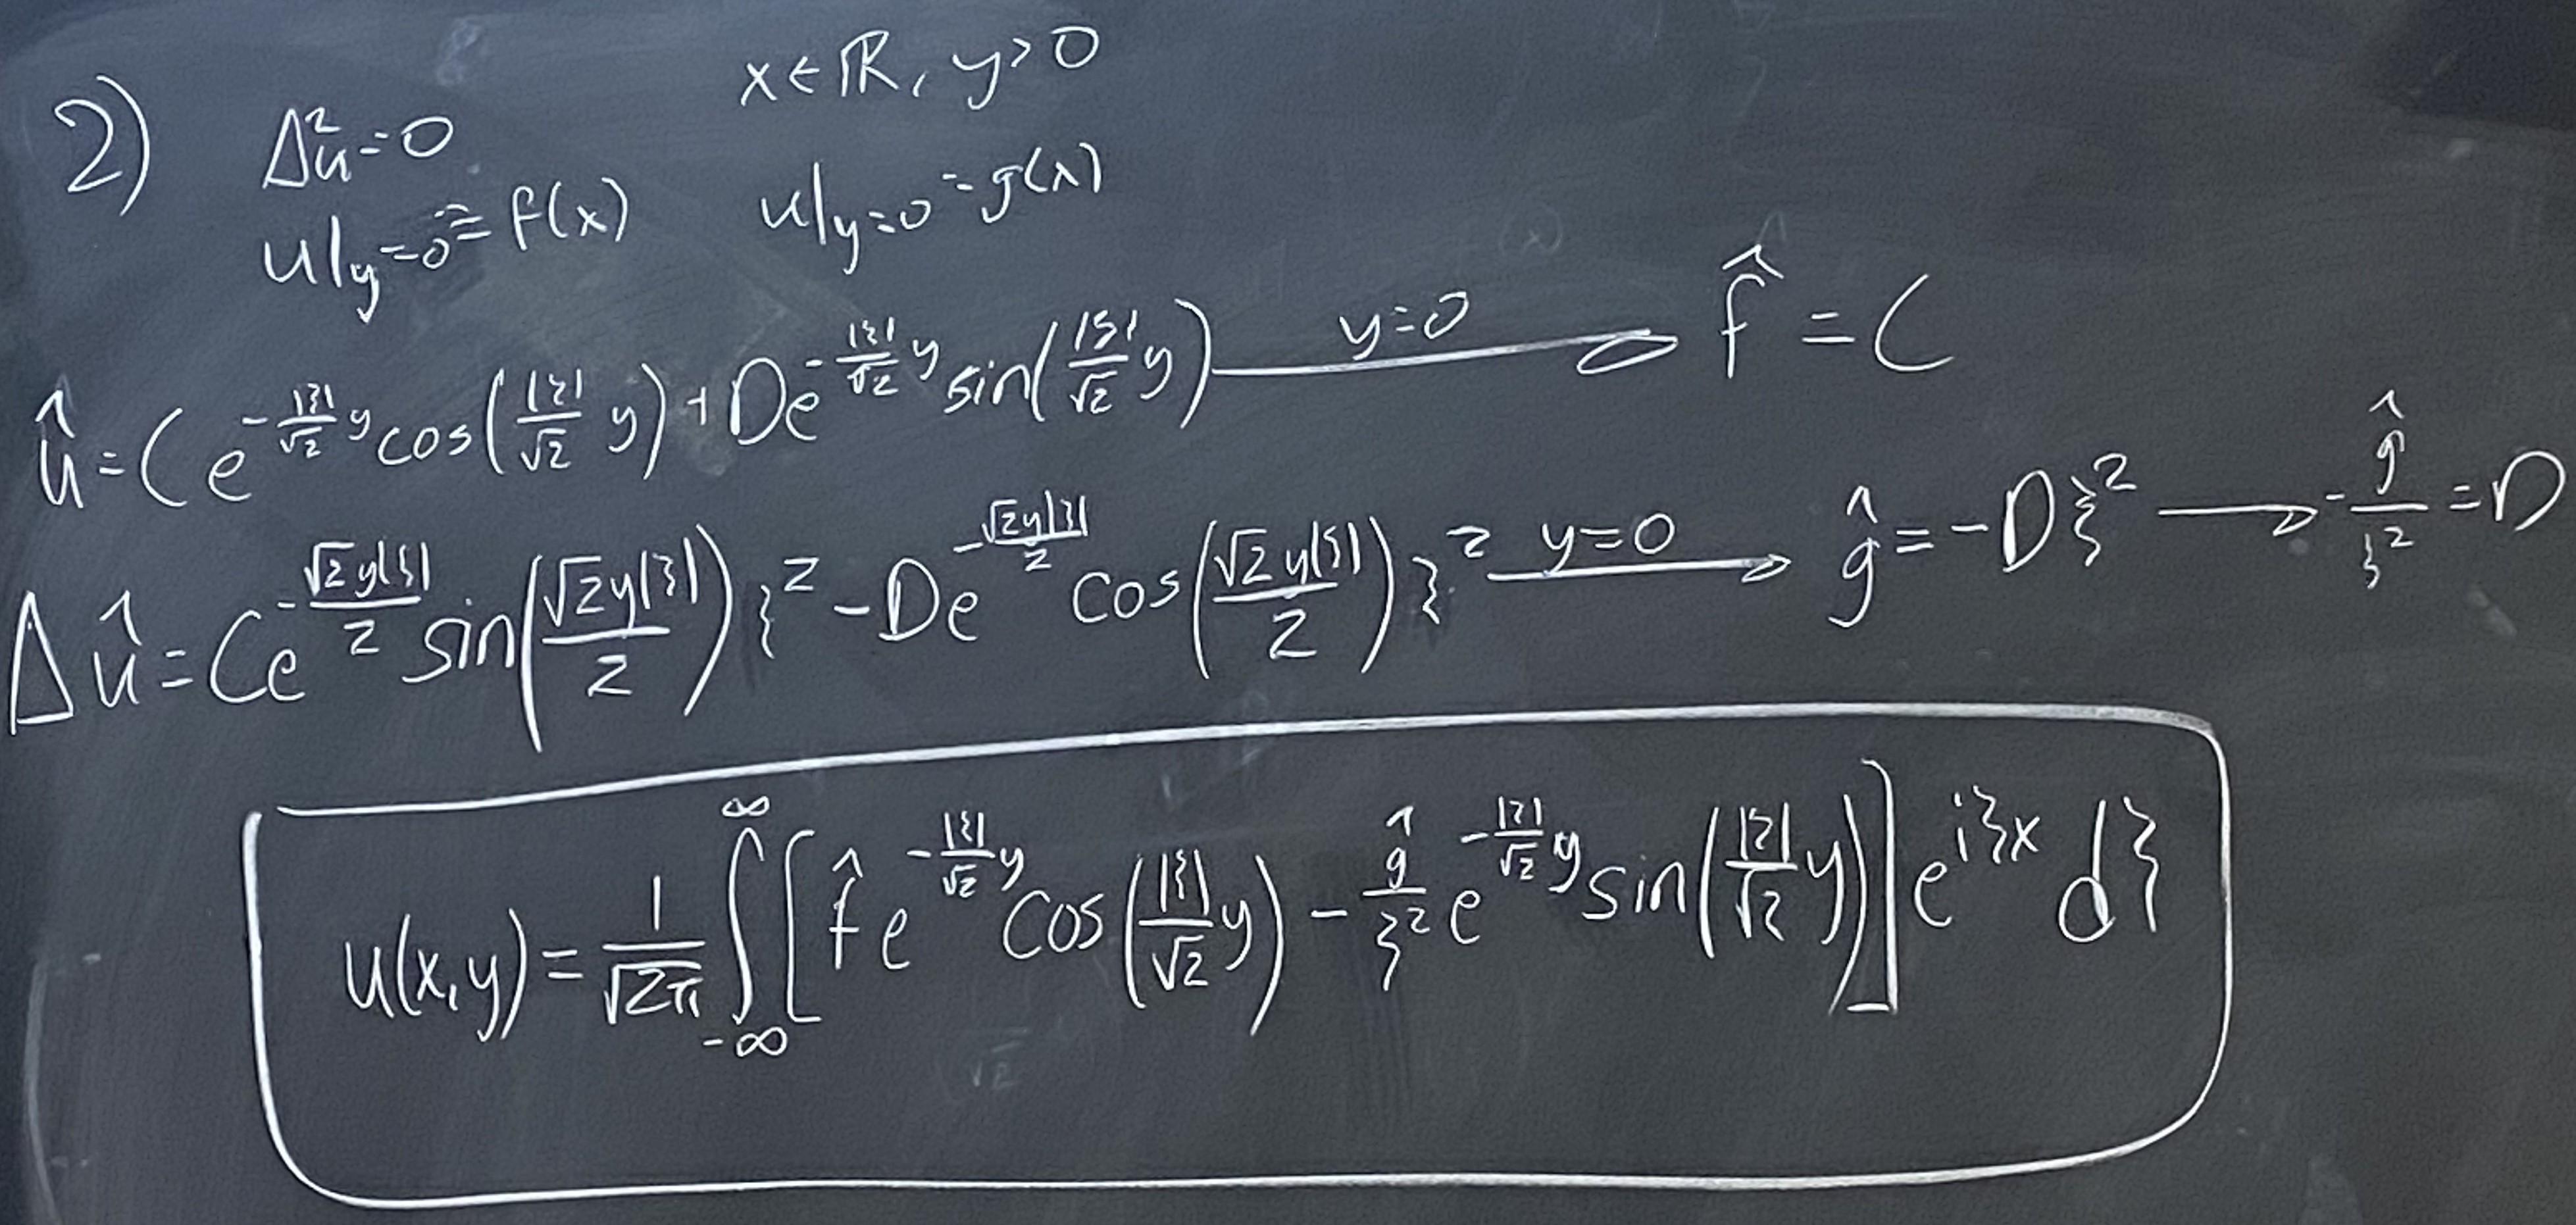 2) Δ²u=0 x∈ℝ, y>0
u|_{y=0} = f(x) u|_{y=0} = g(x)
û = C e^{-\frac{|ξ|}{√2}y} cos(\frac{|ξ|}{√2} y) + D e^{-\frac{|ξ|}{√2}y} sin(\frac{|ξ|}{√2} y) \xrightarrow{y=0} f̂ = C
Δû = C e^{-\frac{√2 y|ξ|}{2}} sin(\frac{√2 y|ξ|}{2}) ξ² - D e^{-\frac{√2 y|ξ|}{2}} cos(\frac{√2 y|ξ|}{2}) ξ² \xrightarrow{y=0} ĝ = -D ξ² → -\frac{ĝ}{ξ²} = D
u(x,y) = \frac{1}{√2π} ∫_{-∞}^{∞} [ f̂ e^{-\frac{|ξ|}{√2}y} cos(\frac{|ξ|}{√2} y) - \frac{ĝ}{ξ²} e^{-\frac{|ξ|}{√2}y} sin(\frac{|ξ|}{√2} y) ] e^{iξx} dξ